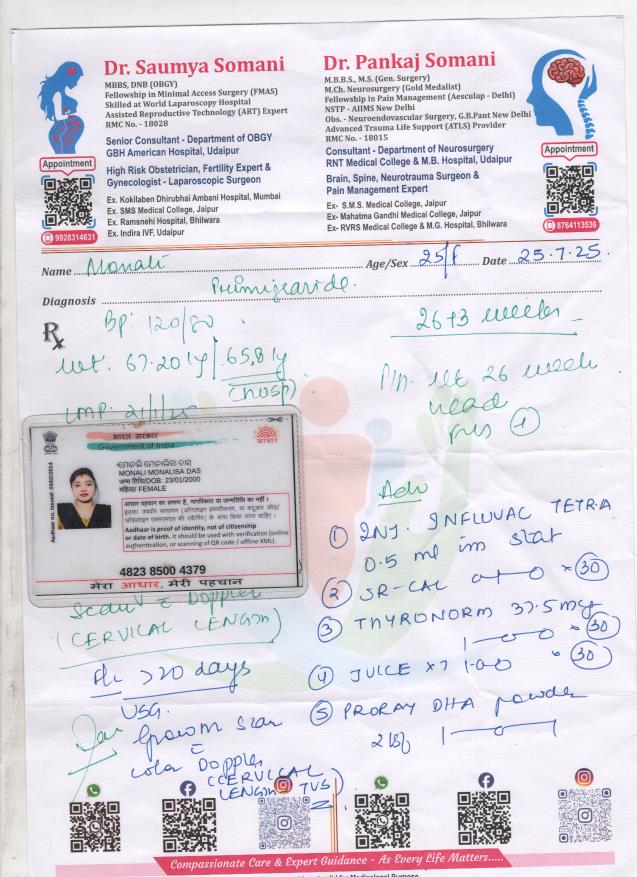 Dr. Saumya Somani
MBBS, DNB (OBGY)
Fellowship in Minimal Access Surgery (FMAS)
Skilled at World Laparoscopy Hospital
Assisted Reproductive Technology (ART) Expert
RMC No. - 18028
Senior Consultant - Department of OBGY
GBH American Hospital, Udaipur
High Risk Obstetrician, Fertility Expert &
Gynecologist - Laparoscopic Surgeon
Ex. Kokilaben Dhirubhai Ambani Hospital, Mumbai
Ex. SMS Medical College, Jaipur
Ex. Ramsnehi Hospital, Bhilwara
Ex. Indira IVF, Udaipur
Appointment
9928314631
Dr. Pankaj Somani
M.B.B.S., M.S. (Gen. Surgery)
M.Ch. Neurosurgery (Gold Medalist)
Fellowship in Pain Management (Aesculap - Delhi)
NSTP - AIIMS New Delhi
Obs. - Neuroendovascular Surgery, G.B.Pant New Delhi
Advanced Trauma Life Support (ATLS) Provider
RMC No. - 18015
Consultant - Department of Neurosurgery
RNT Medical College & M.B. Hospital, Udaipur
Brain, Spine, Neurotrauma Surgeon &
Pain Management Expert
Ex- S.M.S. Medical College, Jaipur
Ex- Mahatma Gandhi Medical College, Jaipur
Ex- RVRS Medical College & M.G. Hospital, Bhilwara
Appointment
8764113536
Name Monali Age/Sex 25/f Date 25.7.25
Diagnosis Primigravida.
Rx
BP: 120/80
26+3 weeks
wt. 67.20 kg / 65.8 kg
(hosp)
LMP: 21/1/25
26 week
head
भारत सरकार
Government of India
आधार
ମୋନାଲି ମୋନାଲିସା ଦାସ
MONALI MONALISA DAS
जन्म तिथि/DOB: 23/01/2000
महिला/ FEMALE
Aadhaar no. issued: 05/02/2014
आधार पहचान का प्रमाण है, नागरिकता या जन्मतिथि का नहीं।
Aadhaar is proof of identity, not of citizenship
or date of birth. It should be used with verification (online
authentication, or scanning of QR code / offline XML).
4823 8500 4379
मेरा आधार, मेरी पहचान
Doppler
(CERVICAL LENGTH)
>20 days
USG.
Growth scan
c
color Doppler
(CERVICAL
LENGTH TVS)
Adv
① INJ. INFLUVAC TETRA
0.5 ml im stat
② SR-CAL 0-1-0 × 30
③ THYRONORM 37.5 mcg
1-0-0 × 30
④ JUICE × 7 1-0-0 × 30
⑤ PRORAY DHA powder
2 tsf 1-0-1
Compassionate Care & Expert Guidance - As Every Life Matters.....